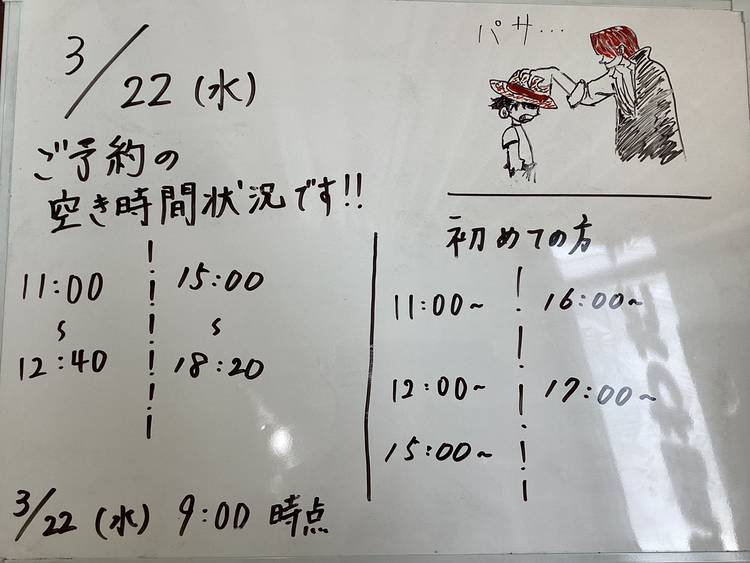 3/22 (水)
ご予約の
空き時間状況です!!
11:00
～
12:40
15:00
～
18:20
3/22 (水) 9:00 時点
パサ…
初めての方
11:00~
12:00~
15:00~
16:00~
17:00~